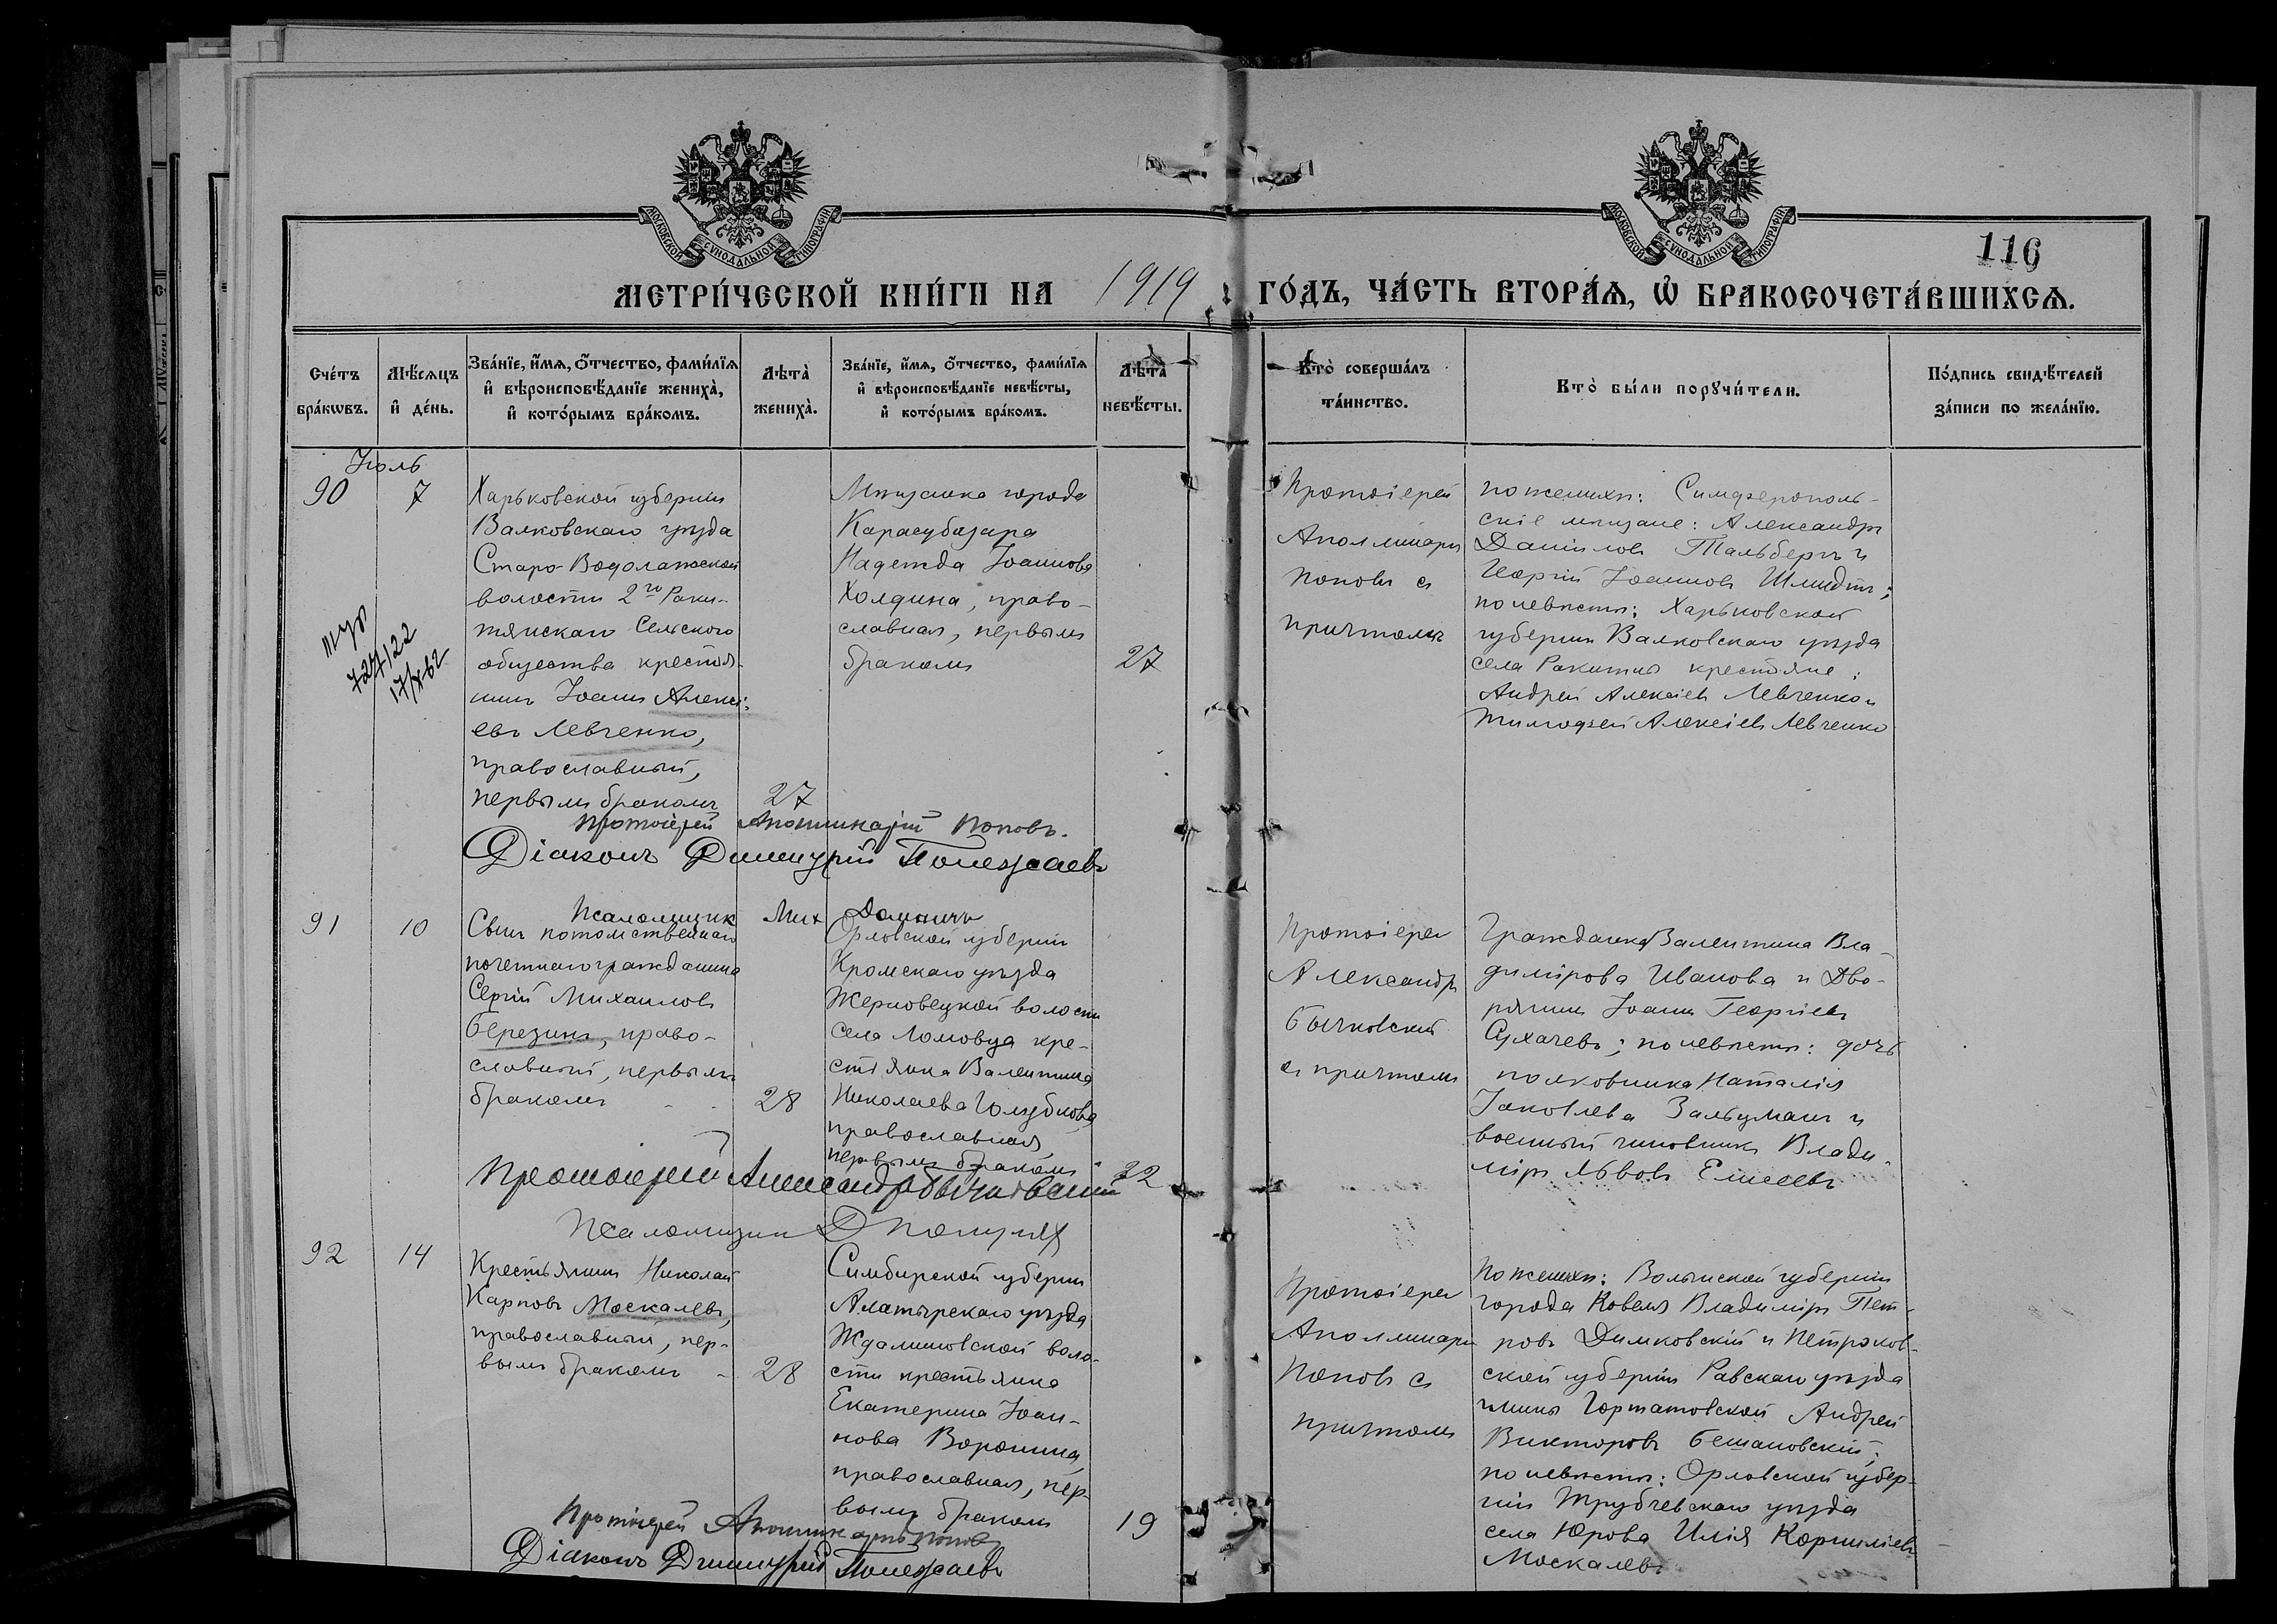 МОСКОВСКОЙ СУНОДАЛЬНОЙ ТИПОГРАФІИ
МОСКОВСКОЙ СУНОДАЛЬНОЙ ТИПОГРАФІИ
116
МЕТРИ́ЧЕСКОЙ КНИ́ГИ НА 1919 ГО́ДЪ, ЧА́СТЬ ВТОРА́Я, Ѡ БРАКОСОЧЕТА́ВШИХСЯ.
Сче́тъ
бра́кѡвъ.
Мѣ́сяцъ
и҆ де́нь.
Зва́нїе, и҆́мя, о҆́тчество, фами́лїя
и҆ вѣроисповѣ́данїе жениха̀,
и҆ кото́рымъ бра́комъ.
Лѣта̀
жениха̀.
Зва́нїе, и҆́мя, о҆́тчество, фами́лїя
и҆ вѣроисповѣ́данїе невѣ́сты,
и҆ кото́рымъ бра́комъ.
Лѣта̀
невѣ́сты.
Кто̀ соверша́лъ
та́инство.
Кто̀ бы́ли порꙋчи́тели.
По́дпись свидѣ́телей
за́писи по жела́нїю.
Іюль
90
7
Харьковской губерніи
Валковскаго уѣзда
Старо-Водолажской
волости 2го Раки-
тянскаго Сельскаго
общества крестья-
нинъ Іоаннъ Алексі-
евъ Левченко,
православный,
первымъ бракомъ
27
Мѣщанка города
Карасубазара
Надежда Іоаннова
Холдина, право-
славная, первымъ
бракомъ
27
Протоіерей
Аполлинарій
Поповъ съ
причтомъ
по женихѣ: Симферополь-
скіе мѣщане: Александръ
Даніиловъ Тальбергъ и
Георгій Іоанновъ Шмидтъ;
по невѣстѣ: Харьковской
губерніи Валковскаго уѣзда
села Ракитна крестьяне:
Андрей Алексіевъ Левченко и
Тимофей Алексіевъ Левченко
727/122
17/X 62
Протоіерей Аполлинарій Поповъ.
Діаконъ Димитрій Полежаевъ
Псаломщикъ Мих
91
10
Сынъ потомственнаго
почетнаго гражданина
Сергій Михаиловъ
Березинъ, право-
славный, первымъ
бракомъ
28
Орловской губерніи
Кромскаго уѣзда
Жерновецкой волости
села Ломовца кре-
стьянка Валентина
Николаева Голубкова
православная,
первымъ бракомъ
22
Протоіерей
Александръ
Бычковскій
съ причтомъ
Гражданка Валентина Вла-
димірова Иванова и Дво-
рянинъ Іоаннъ Георгіевъ
Сухачевъ; по невѣстѣ: дочь
полковника Наталія
Іаковлева Зальцманъ и
военный чиновникъ Влади-
міръ Львовъ Елисеевъ
Протоіерей Александръ Бычковскій
Псаломщикъ
92
14
Крестьянинъ Николай
Карповъ Москалевъ,
православный, пер-
вымъ бракомъ
28
Симбирской губерніи
Алатырскаго уѣзда
Ждамировской воло-
сти крестьянка
Екатерина Іоан-
нова Воронина,
православная, пер-
вымъ бракомъ
19
Протоіерей
Аполлинарій
Поповъ съ
причтомъ
По женихѣ: Волынской губерніи
города Ковеля Владиміръ Пет-
ровъ Димковскій и Петроков-
ской губерніи Равскаго уѣзда
гмины Гортатовской Андрей
Викторовъ Бешановскій;
по невѣстѣ: Орловской губер-
ніи Трубчевскаго уѣзда
села Юрова Илія Корниліевъ
Москалевъ
Протоіерей Аполлинарій Поповъ
Діаконъ Димитрій Полежаевъ